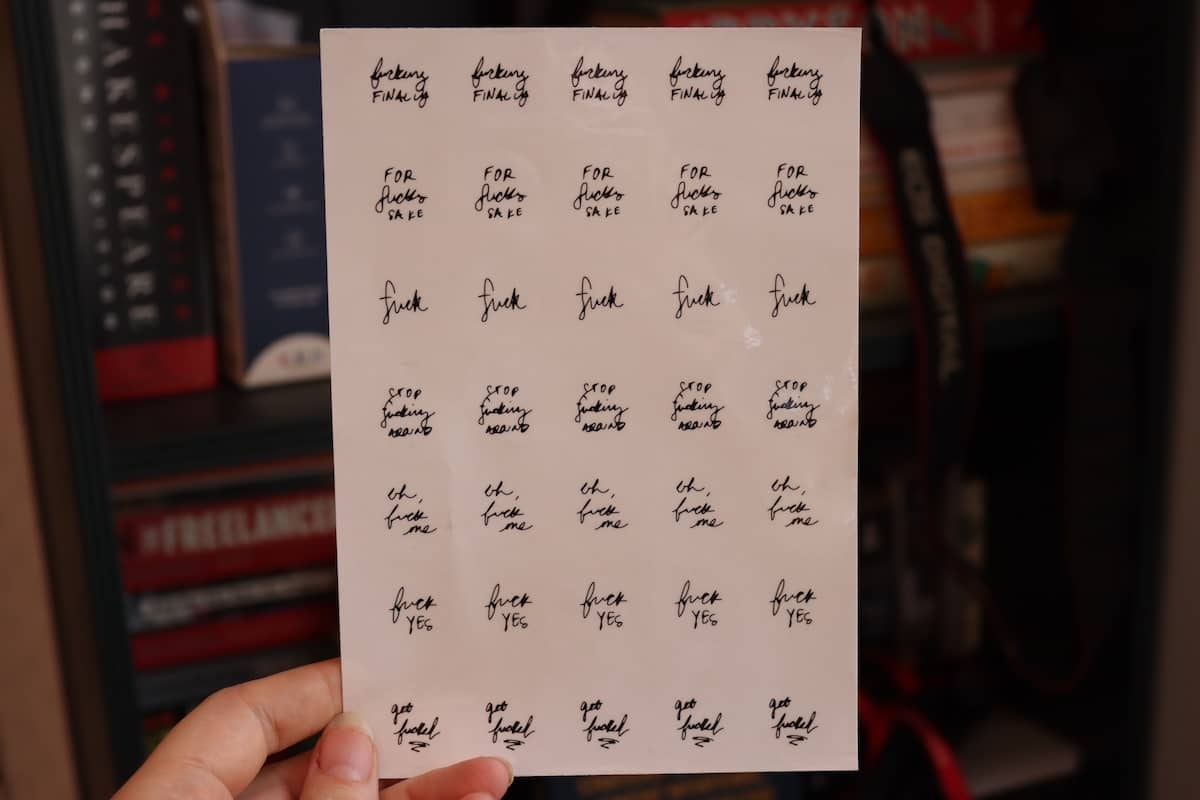 SHAKESPEARE
fucking fucking fucking fucking fucking
FINALLY FINALLY FINALLY FINALLY FINALLY
FOR FOR FOR FOR FOR
fucks fucks fucks fucks fucks
SAKE SAKE SAKE SAKE SAKE
fuck fuck fuck fuck fuck
STOP STOP STOP STOP STOP
fucking fucking fucking fucking fucking
AROUND AROUND AROUND AROUND AROUND
oh, oh, oh, oh, oh,
fuck fuck fuck fuck fuck
me me me me me
fuck fuck fuck fuck fuck
YES YES YES YES YES
get get get get get
fucked fucked fucked fucked fucked
EOS DIGITAL
#FREELANCER